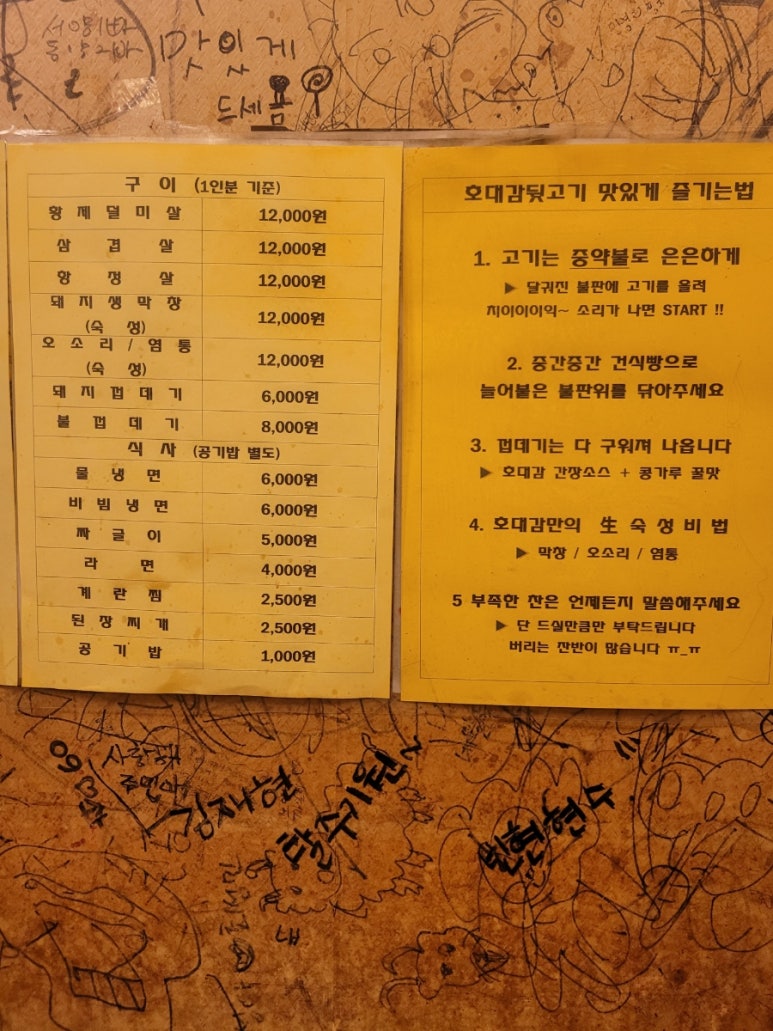 맛있게
드세욤
구 이 (1인분 기준)
황제덜미살 12,000원
삼겹살 12,000원
항정살 12,000원
돼지생막창 (숙성) 12,000원
오소리/염통 (숙성) 12,000원
돼지껍데기 6,000원
불껍데기 8,000원
식 사 (공기밥 별도)
물냉면 6,000원
비빔냉면 6,000원
짜글이 5,000원
라면 4,000원
계란찜 2,500원
된장찌개 2,500원
공기밥 1,000원
호대감뒷고기 맛있게 즐기는법
1. 고기는 중약불로 은은하게
▶ 달궈진 불판에 고기를 올려
치이이이익~ 소리가 나면 START !!
2. 중간중간 건식빵으로
늘어붙은 불판위를 닦아주세요
3. 껍데기는 다 구워져 나옵니다
▶ 호대감 간장소스 + 콩가루 꿀맛
4. 호대감만의 生 숙성비법
▶ 막창 / 오소리 / 염통
5 부족한 찬은 언제든지 말씀해주세요
▶ 단 드실만큼만 부탁드립니다
버리는 잔반이 많습니다 ㅠ_ㅠ
사랑해
김재현
탈주기원~